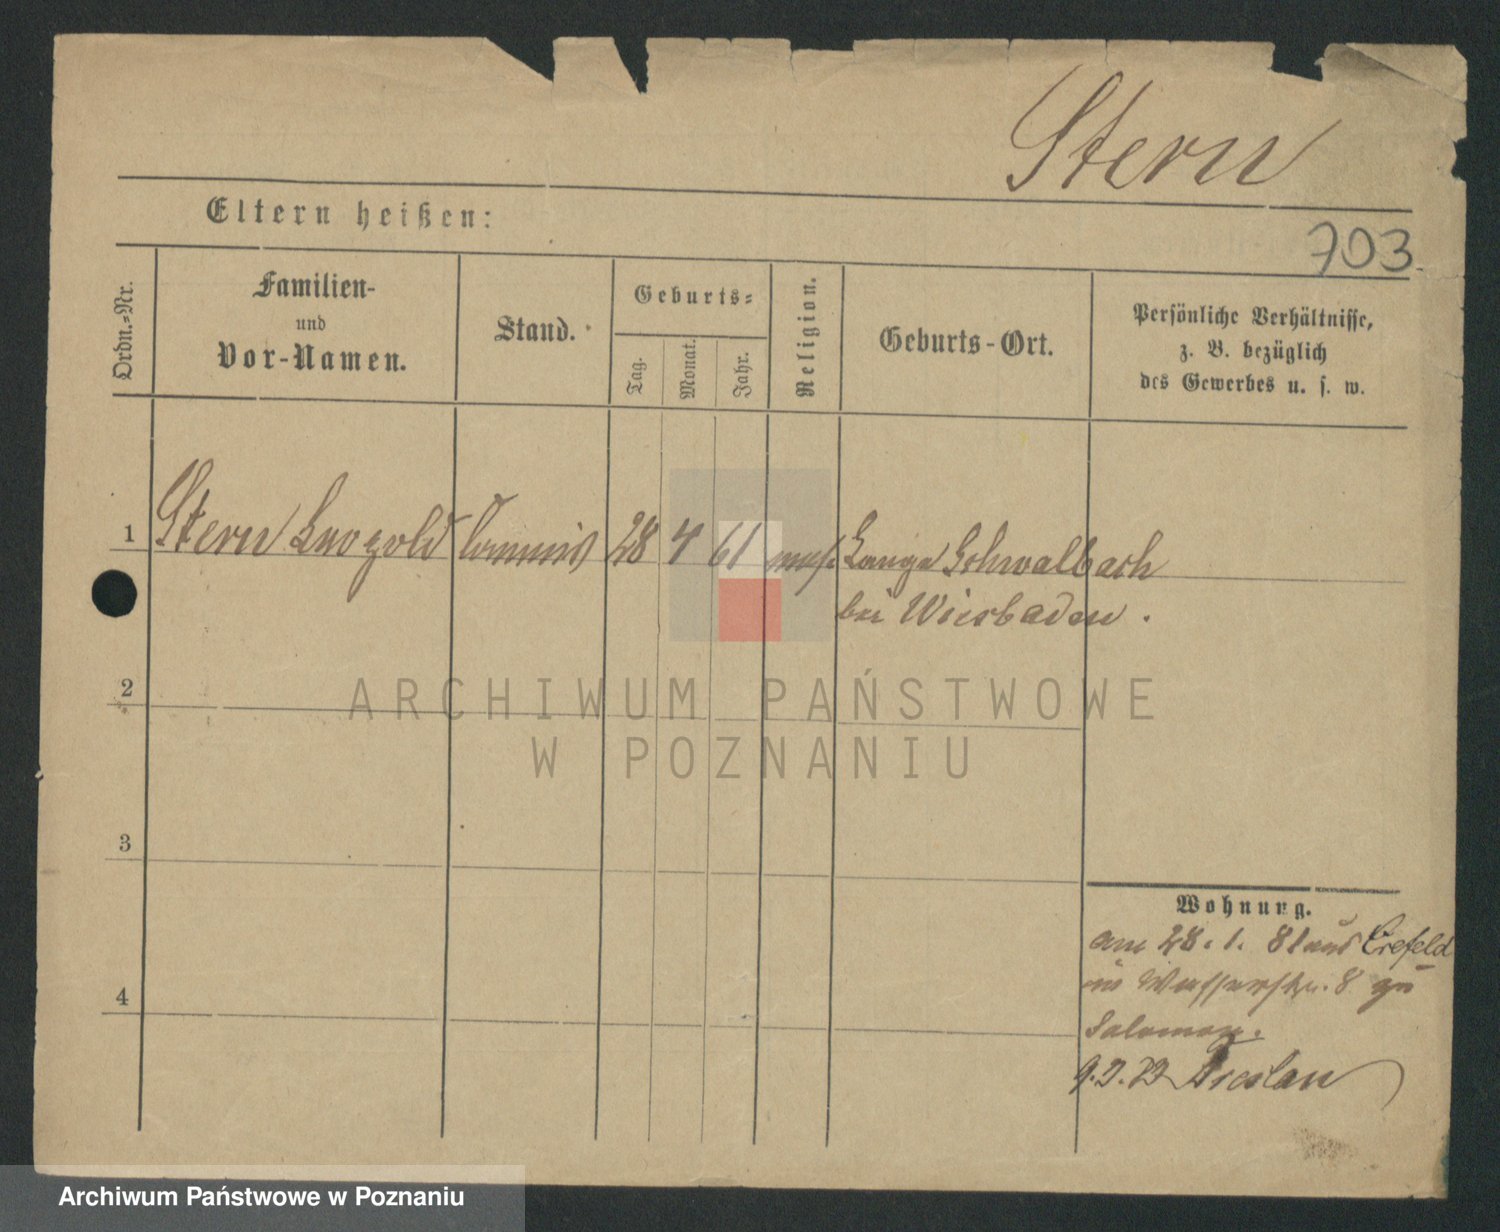 Stern
Eltern heißen:
703.
Ordn.-Nr.
Familien-
und
Vor-Namen.
Stand.
Geburts-
Tag.
Monat.
Jahr.
Religion.
Geburts-Ort.
Persönliche Verhältnisse,
z. B. bezüglich
des Gewerbes u. s. w.
1 Stern Leopold Commis 28 4 61 mos. Lange Schwalbach
bei Wiesbaden.
2
3
4
Wohnung.
am 28. 1. 81 aus Crefeld
in Wasserstr. 8 zu
Salomon.
Breslau
ARCHIWUM PAŃSTWOWE
W POZNANIU
Archiwum Państwowe w Poznaniu